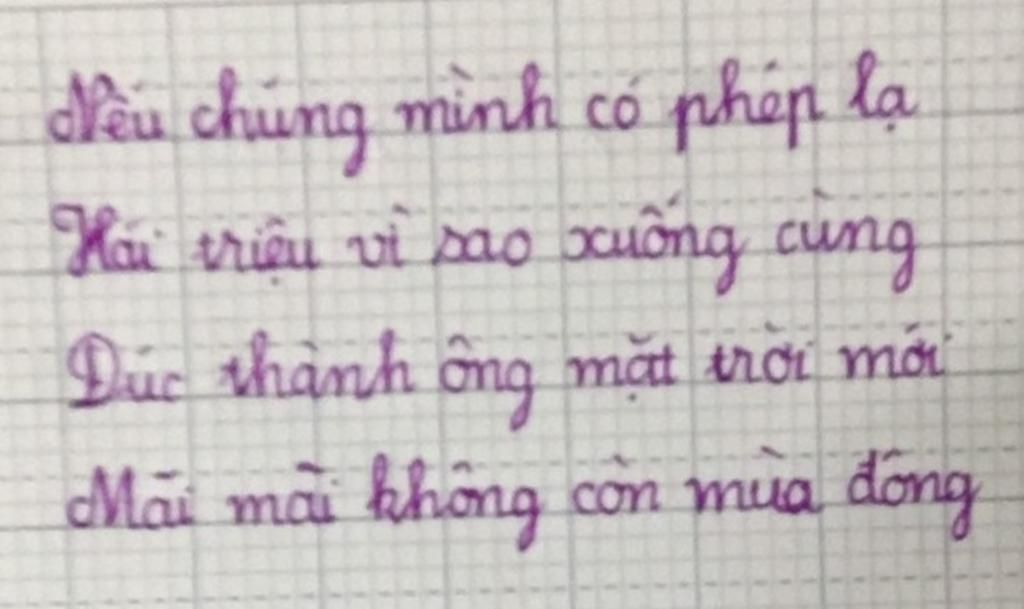 Nếu chúng mình có phép lạ
Hái triệu vì sao xuống cùng
Đúc thành ông mặt trời mới
Mãi mãi không còn mùa đông